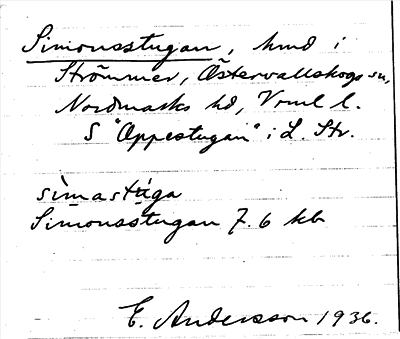 Simonsstugan, hmd i
Strömmer, Östervallskogs sn,
Nordmarks hd, Vrml l.
S "Oppestugan" i L. Str.
sìmastúga
Simonsstugan 7.6 kb
E. Andersson 1936.